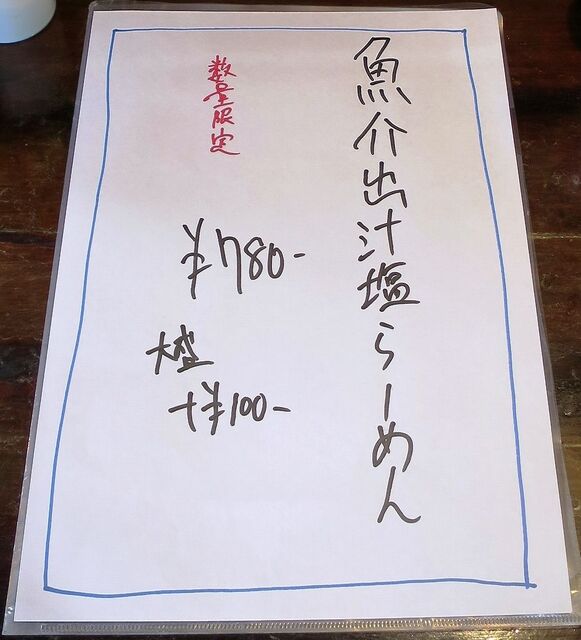 魚介出汁塩らーめん
数量限定
¥780-
大盛
+¥100-